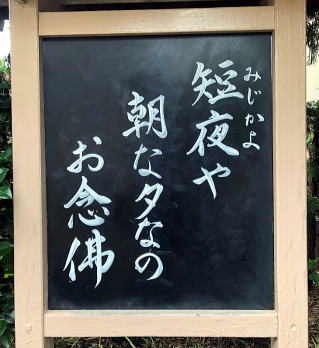 短夜や
みじかよ
朝な夕なの
お念佛